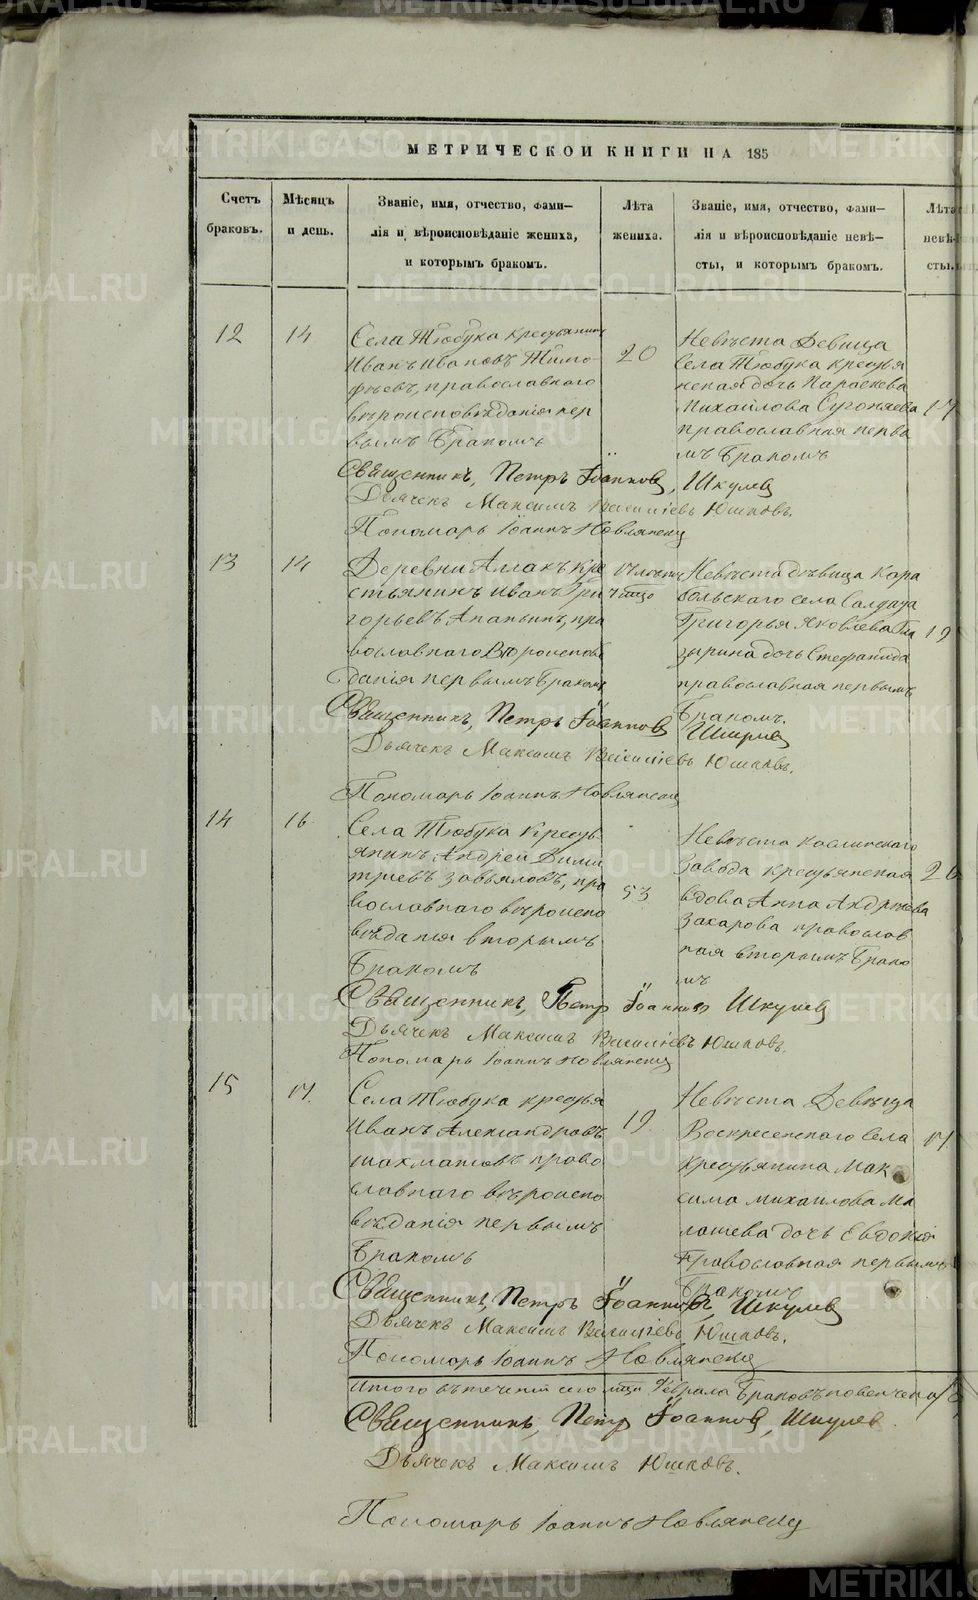 МЕТРИЧЕСКОЙ КНИГИ НА 185
Счетъ браковъ.
Мѣсяцъ и день.
Званіе, имя, отчество, фами-
лія и вѣроисповѣданіе жениха,
и которымъ бракомъ.
Лѣта жениха.
Званіе, имя, отчество, фами-
лія и вѣроисповѣданіе невѣ-
сты, и которымъ бракомъ.
Лѣта
невѣ-
сты.
12
14
Села Тюбука крестьянинъ
Иванъ Ивановъ Тимо-
фѣевъ, православнаго
вѣроисповѣданія пер
вымъ бракомъ
20
Невѣста Девица
села Тюбука крестья
нская дочь Параскева
Михайлова
православная первы
мъ бракомъ
17
Священникъ, Петръ Іоанновъ, Шкулев
Дьячекъ Максимъ Василіевъ Юшковъ.
Пономарь Іоаннъ Новлянскій
13
14
Деревни Аллакъ кре
стьянинъ Иванъ Гри
горьевъ Апанинъ, пра
вославнаго вѣроисповѣ
данія первымъ бракомъ
Невѣста дѣвица Кара
больскаго села Солдата
Григорья Яковлева
дочь Стефанида
православная первымъ
бракомъ.
19
Священникъ, Петръ Іоанновъ Шкулев
Дьячекъ Максимъ Василіевъ Юшковъ.
Пономарь Іоаннъ Новлянскій
14
16
Села Тюбука Кресть
янинъ Андрей Дими
тріевъ Завьяловъ, пра
вославнаго вѣроиспо
вѣданья вторымъ
бракомъ
53
Невѣста Каслинскаго
завода крестьянская
вдова Анна Андреева
Захарова православ
ная вторымъ брако
мъ
Священникъ, Петръ Іоанновъ Шкулев
Дьячекъ Максимъ Василіевъ Юшковъ.
Пономарь Іоаннъ Новлянскій
15
17.
Села Тюбука крестья
Иванъ Александровъ
Шахматовъ право
славнаго вѣроиспо
вѣданія первымъ
бракомъ
19
Невѣста Девица
Воскресенскаго села
крестьянина Мак
сима Михайлова Ма
лашева дочь Евдокія
православная первымъ
бракомъ
17.
Священникъ, Петръ Іоанновъ, Шкулев
Дьячекъ Максимъ Василіевъ Юшковъ.
Пономарь Іоаннъ Новлянскій
Итого въ теченіи сего Февраля браковъ повенчено
Священникъ, Петръ Іоанновъ, Шкулев.
Дьячекъ Максимъ Юшковъ.
Пономарь Іоаннъ Новлянскій
METRIKI.GASO-URAL.RU